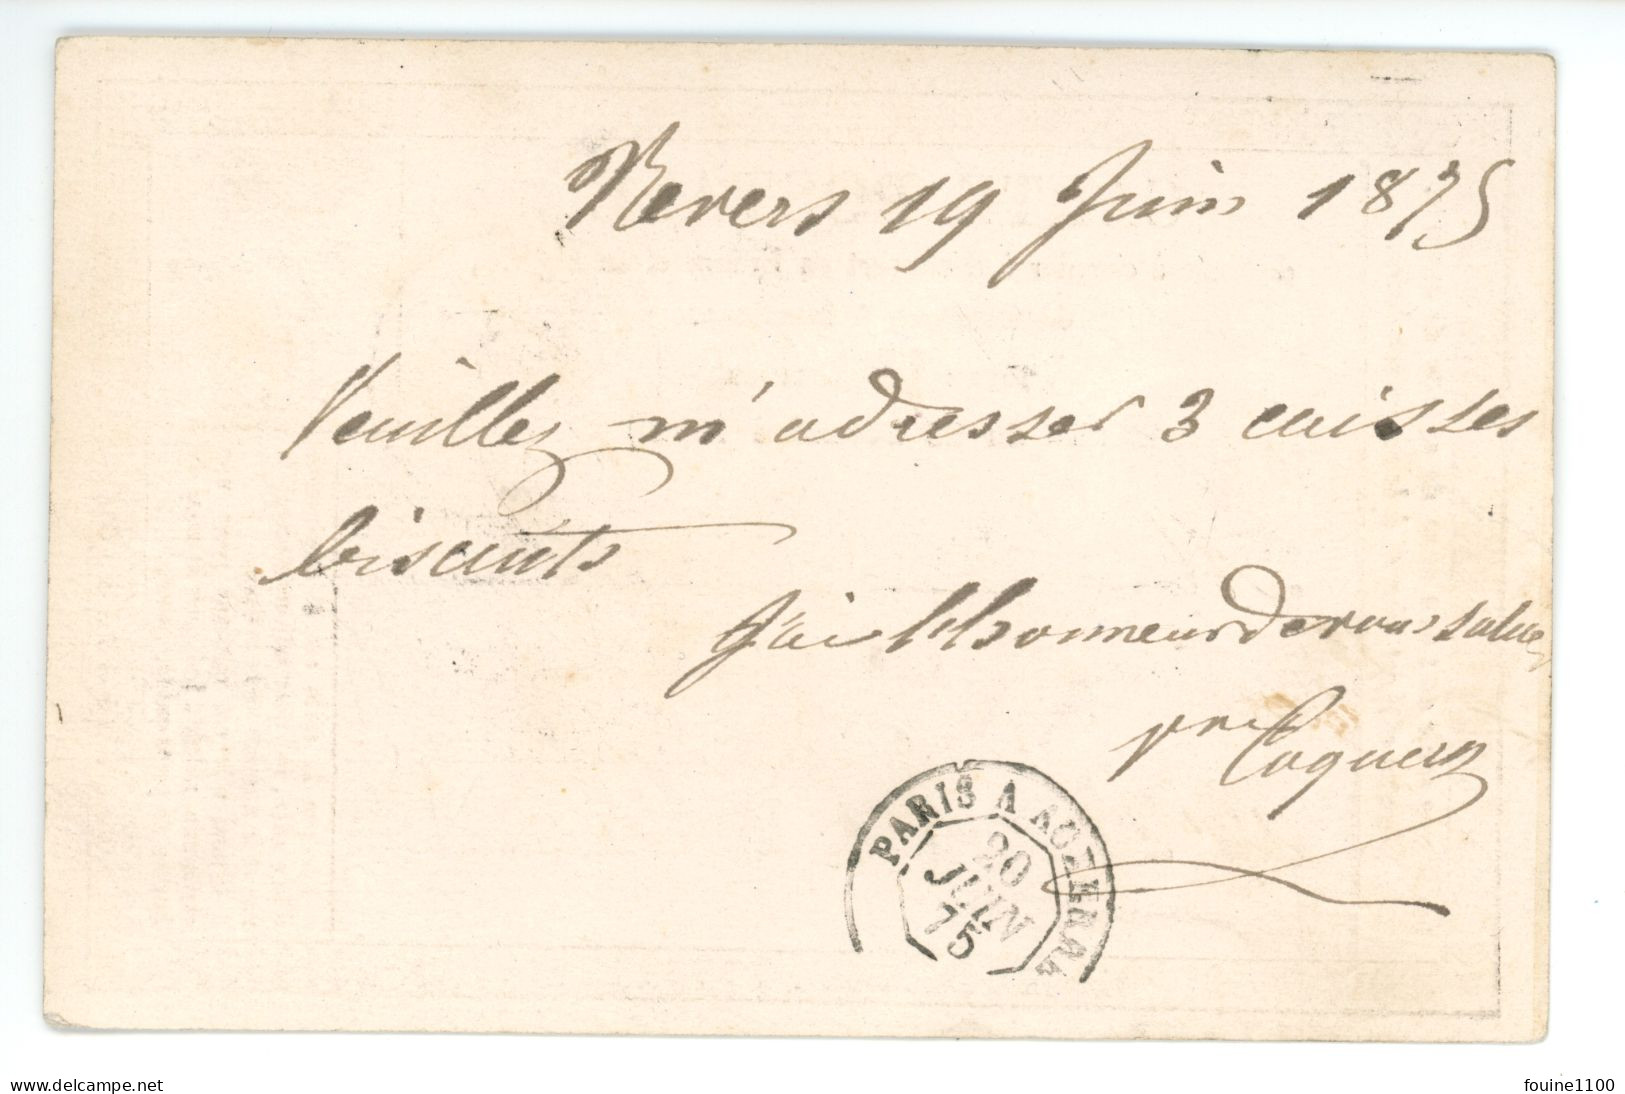 Nevers 19 Juin 1875
Veuillez m'adresser 3 caisses
biscuits
J'ai l'honneur de vous saluer
pr Coquery
PARIS A AUXERRE
20
JUIN
75
www.delcampe.net
fouine1100